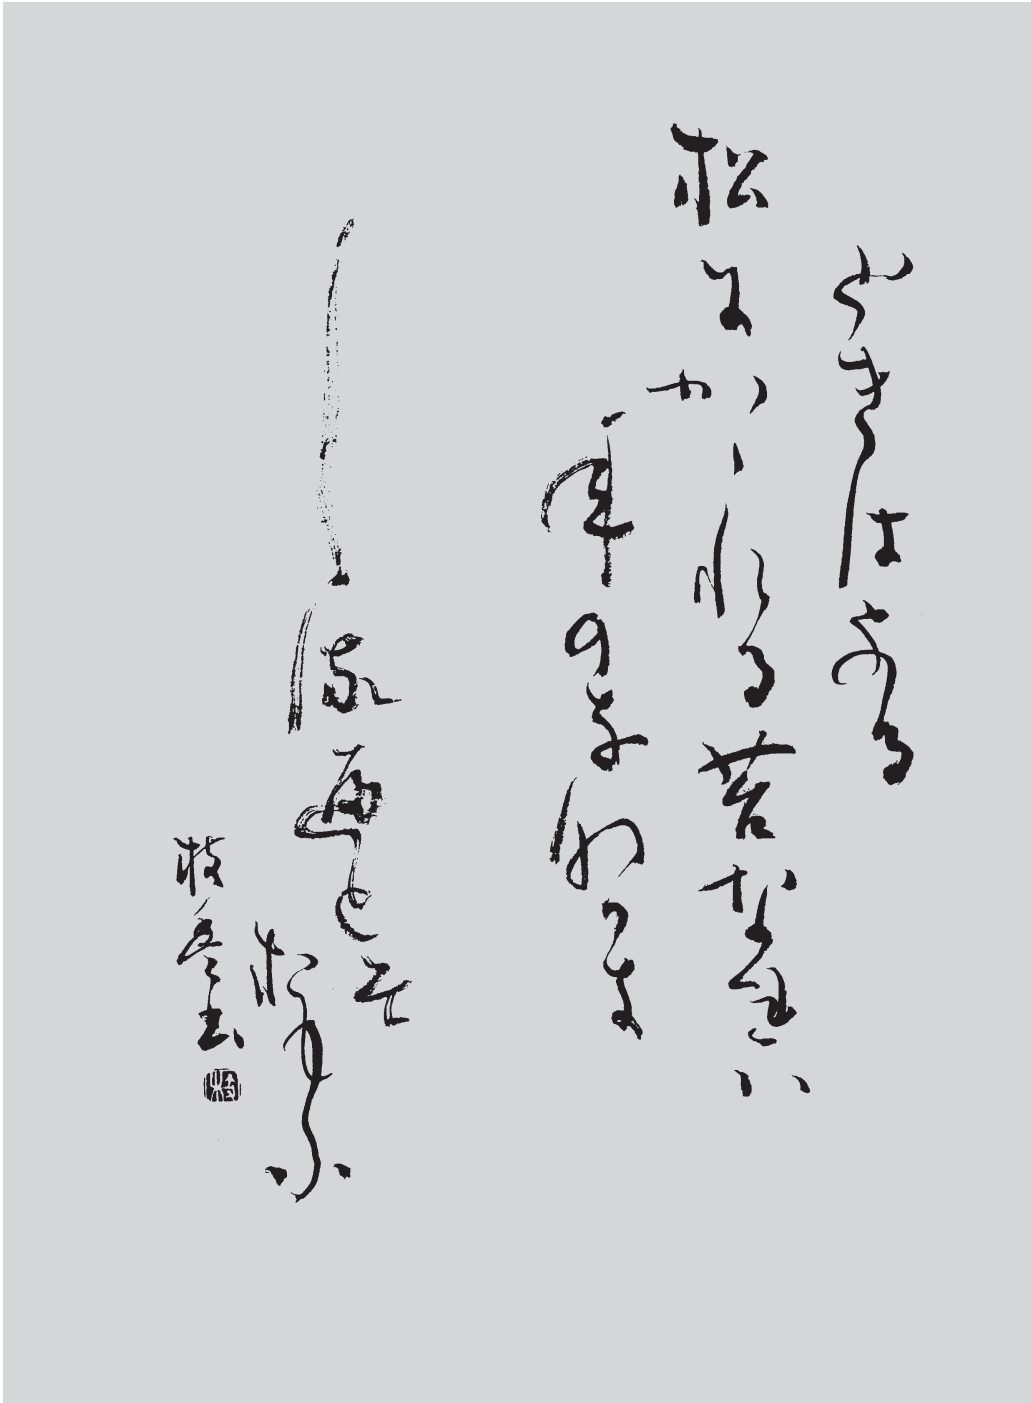 ときはなる
松にかゝれる苔なれハ
年のをなかき
しるへとそ
おもふ